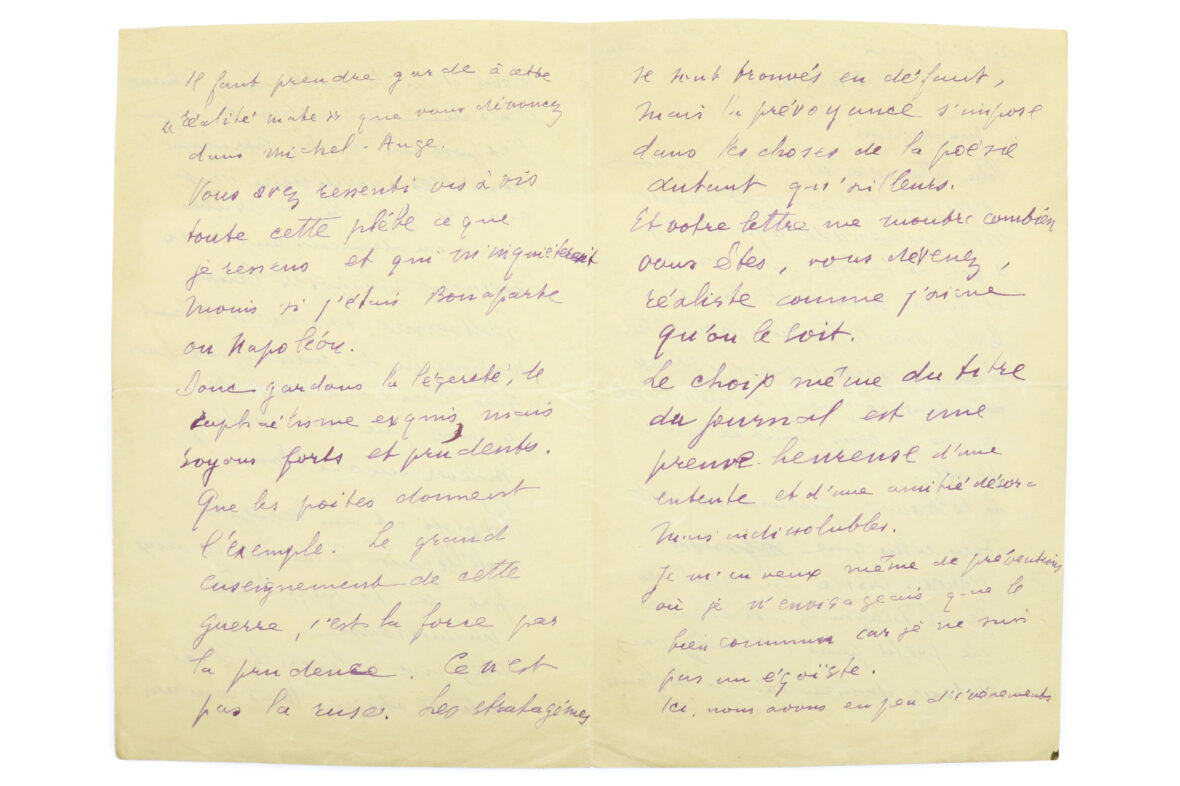 Il faut prendre garde à cette
réalité que vous dénoncez
dans Michel-Ange.
Vous avez ressenti vis à vis
toute cette plèbe ce que
je ressens et qui m'inquièterait
moins si j'étais Bonaparte
ou Napoléon.
Donc gardons la légereté, le
raphaëlisme exquis, mais
soyons forts et prudents.
Que les poètes donnent
l'exemple. Le grand
enseignement de cette
guerre, c'est la force par
la prudence. Ce n'est
pas la ruse. Les stratagèmes
se sont trouvés en défaut,
mais la prévoyance s'impose
dans les choses de la poésie
autant qu'ailleurs.
Et votre lettre me montre combien
vous êtes, vous devenez,
réaliste comme j'aime
qu'on le soit.
Le choix même du titre
du journal est une
preuve heureuse d'une
entente et d'une amitié désor-
mais indissolubles.
Je m'en veux même de préventions
où je n'envisageais que le
bien commun car je ne suis
pas un égoïste.
Ici, nous avons eu peu d'événements